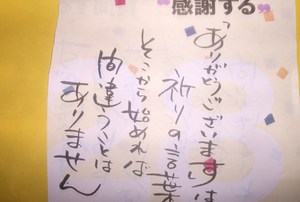 “感謝する”
「ありがとうございます」は
祈りの言葉
そこから始めれば
間違うことは
ありません